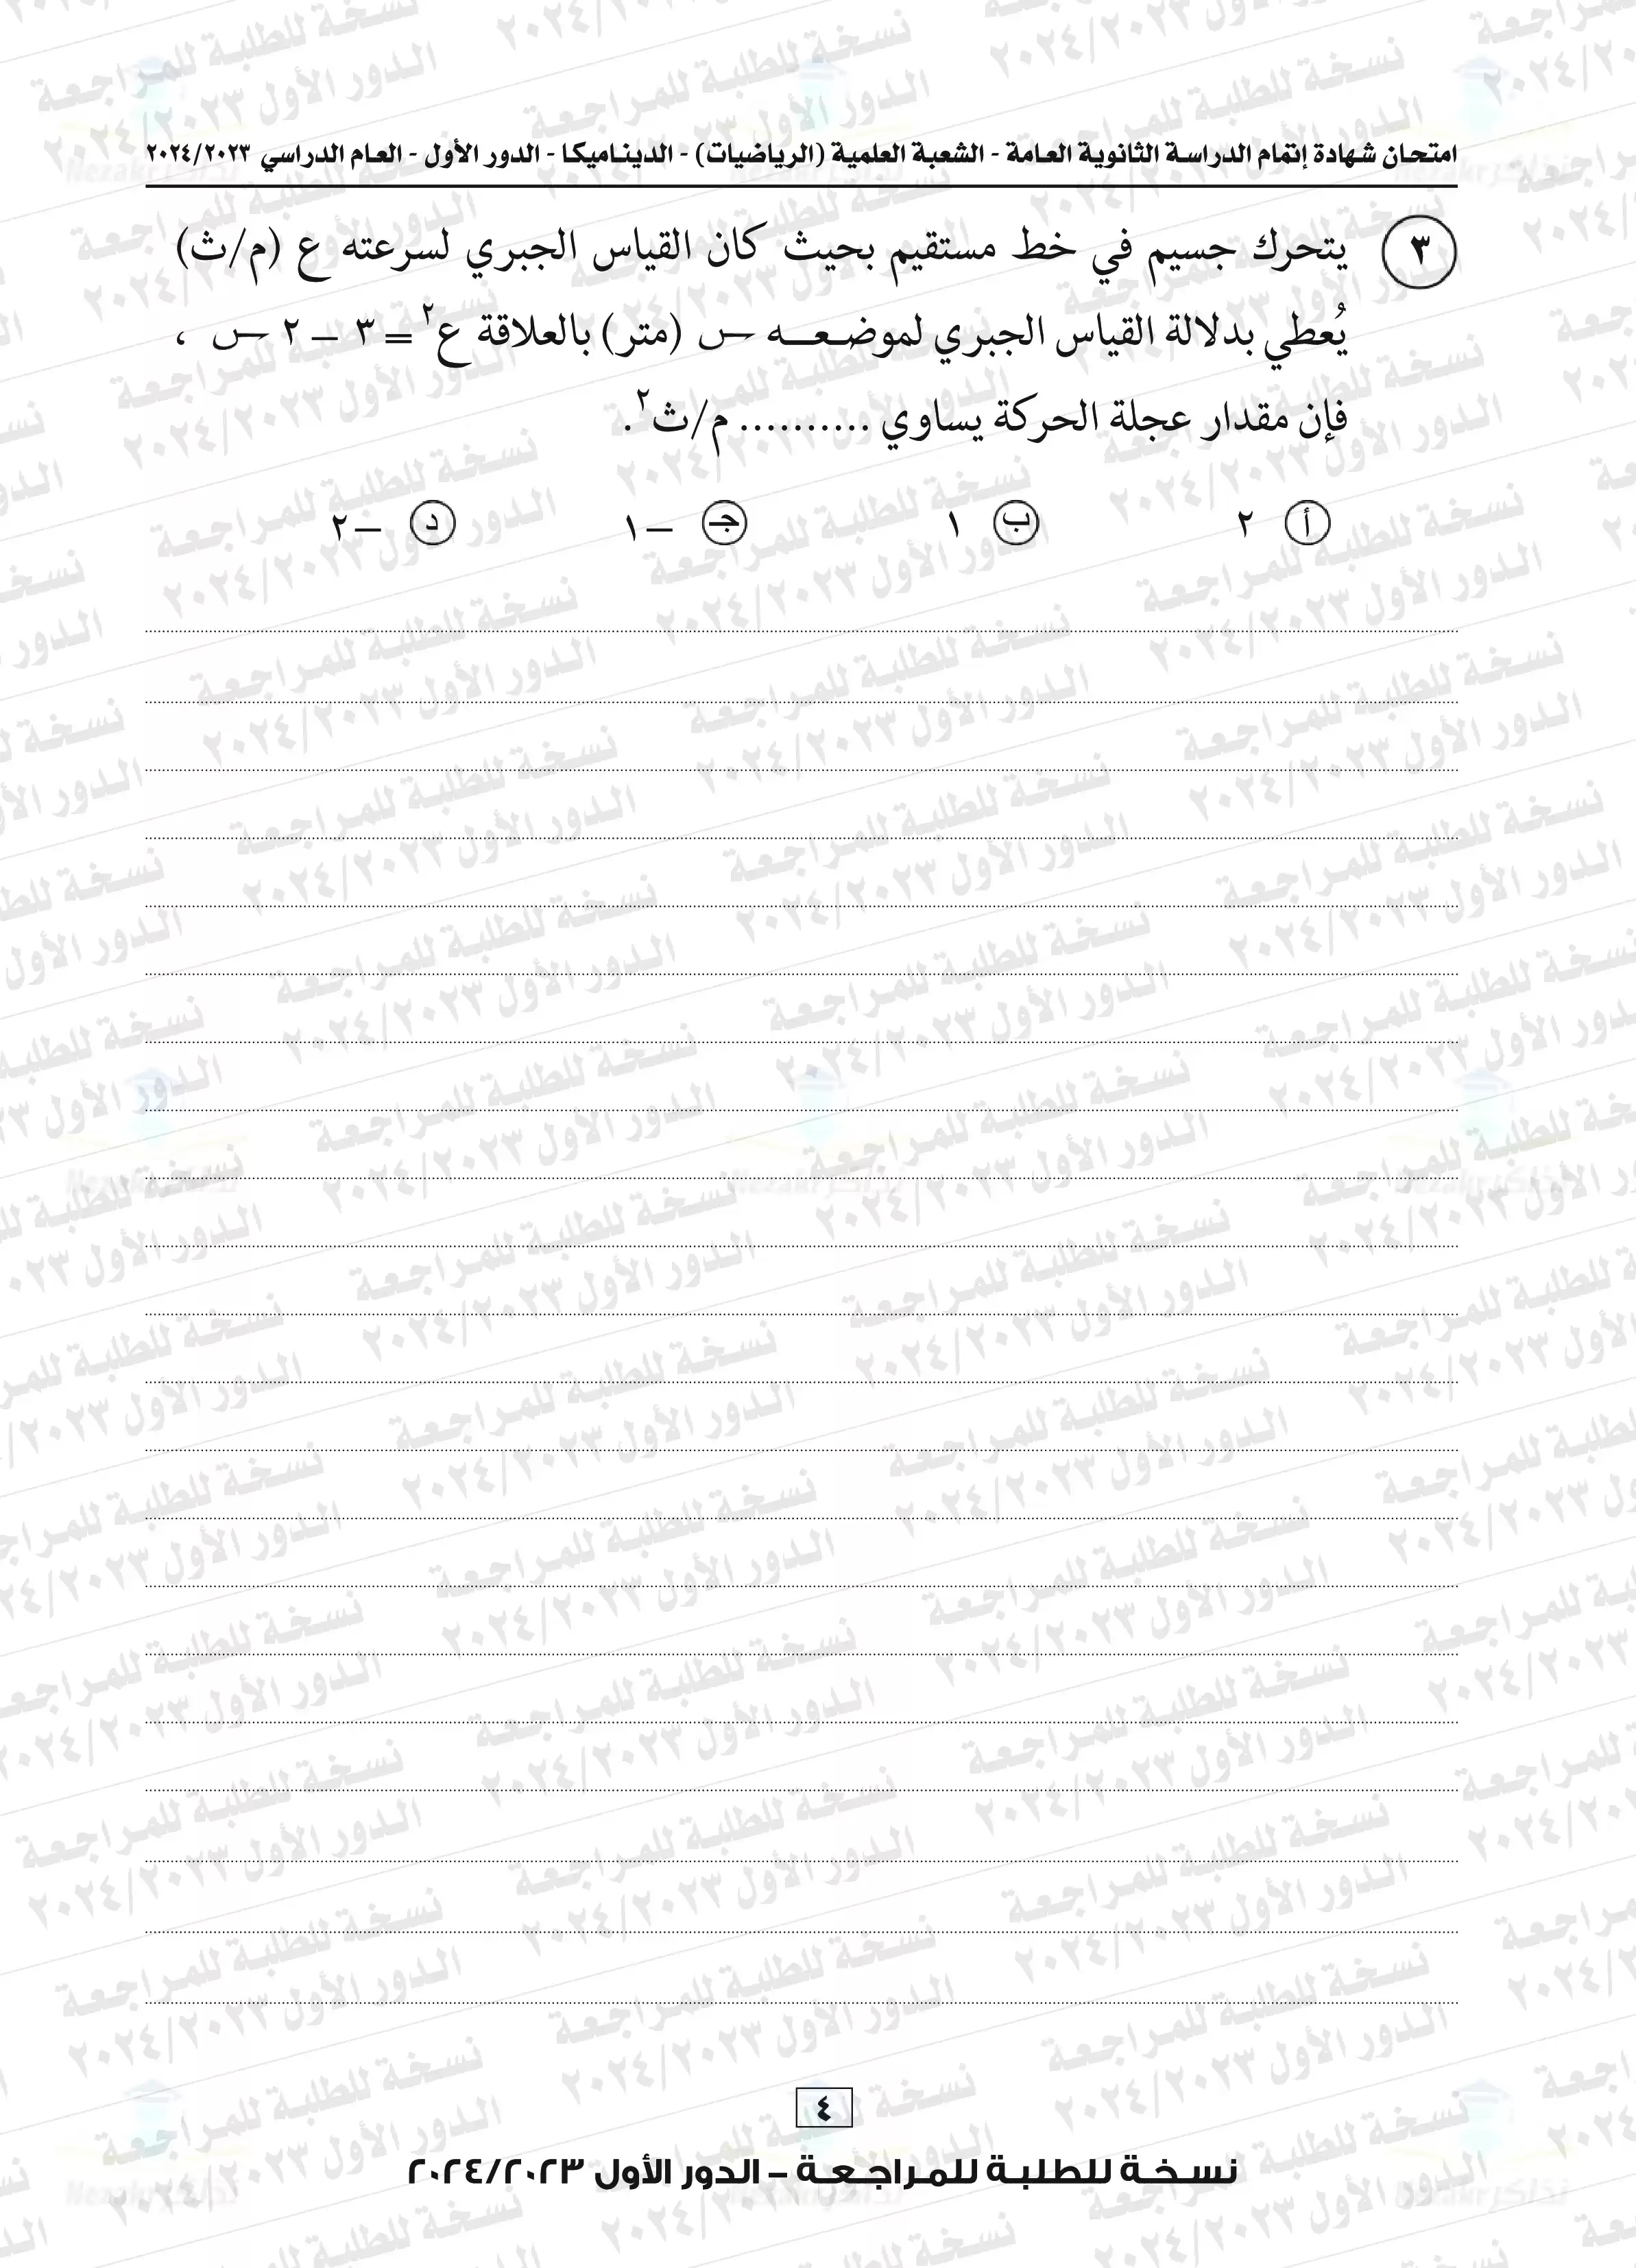 امتحان شهادة إتمام الدراسة الثانوية العامة - الشعبة العلمية (الرياضيات) - الديناميكا - الدور الأول - العام الدراسي ٢٠٢٤/٢٠٢٣
٣ يتحرك جسيم في خط مستقيم بحيث كان القياس الجبري لسرعته ع (م/ث)
يُعطي بدلالة القياس الجبري لموضعه س (متر) بالعلاقة ع٢ = ٣ – ٢ س ،
فإن مقدار عجلة الحركة يساوي .......... م/ث٢ .
أ ٢ ب ١ جـ – ١ د – ٢
٤
نسخة للطلبة للمراجعة – الدور الأول ٢٠٢٤/٢٠٢٣